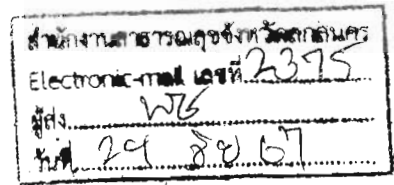 สำนักงานสาธารณสุขจังหวัดสกลนคร
Electronic-mail เลขที่ 2375
ผู้ส่ง
วันที่ 29 ธ.ค. 67